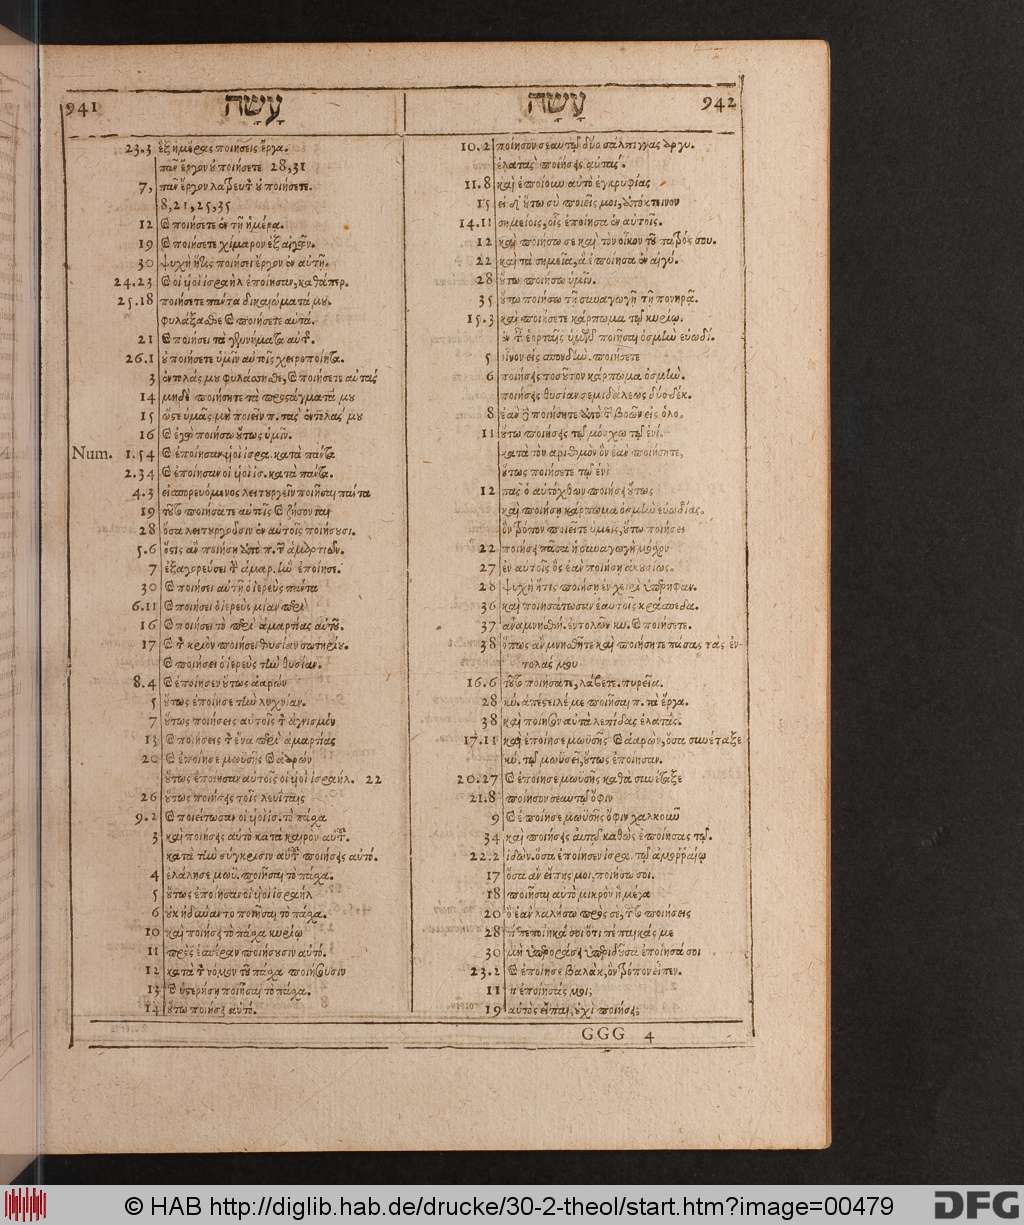 941
עָשָׂה
23.3 ἓξ ἡμέρας ποιήσεις ἔργα.
πᾶν ἔργον οὐ ποιήσετε 28,31
7, πᾶν ἔργον λαβευτ̀ οὐ ποιήσετε.
8,21,25,35
12 καὶ ποιήσετε ἐν τῇ ἡμέρα.
19 καὶ ποιήσετε χίμαρον ἐξ αἰγῶν.
30 ψυχὴ ἥτις ποιήσει ἔργον ἐν αὐτῇ.
24.23 καὶ οἱ υἱοὶ ἰσραὴλ ἐποίησαν, καθάπερ.
25.18 ποιήσετε πάντα δικαιώματά μου.
φυλάξασθε καὶ ποιήσετε αὐτά.
21 καὶ ποιήσει τὰ γεννήματα αὐτ̃.
26.1 οὐ ποιήσετε ὑμῖν αὐτοῖς χειροποίητα.
3 ἐντολάς μου φυλάσησθε, καὶ ποιήσετε αὐτάς
14 μηδὲ ποιήσητε τὰ προστάγματά μου
15 ὥστε ὑμᾶς μὴ ποιεῖν π. τὰς ἐντολάς μου
16 καὶ ἐγὼ ποιήσω οὕτως ὑμῖν.
Num. 1.54 καὶ ἐποίησαν υἱοὶ ἰσρα. κατὰ πάντα
2.34 καὶ ἐποίησαν οἱ υἱοὶ ἰσ. κατὰ πάντα.
4.3 εἰσπορευόμενος λειτουργεῖν ποιῆσαι πάντα
19 τοῦτο ποιήσατε αὐτοῖς καὶ ζήσονται
28 ὅσα λειτουργοῦσιν ἐν αὐτοῖς ποιήσουσι.
5.6 ὅστις ἂν ποιήσῃ ἀπὸ π. τ̃ ἁμαρτιῶν.
7 ἐξαγορεύσει τ̀ ἁμαρ. ἣν ἐποίησε.
30 καὶ ποιήσει αὐτῇ ὁ ἱερεὺς πάντα
6.11 καὶ ποιήσει ὁ ἱερεὺς μίαν περὶ
16 καὶ ποιήσει τὸ περὶ ἁμαρτίας αὐτοῦ.
17 καὶ τ̀ κριὸν ποιήσει θυσίαν σωτηρίου.
καὶ ποιήσει ὁ ἱερεὺς τὴν θυσίαν.
8.4 καὶ ἐποίησεν οὕτως ἀαρών
5 οὕτως ἐποίησε τὴν λυχνίαν.
7 οὕτως ποιήσεις αὐτοῖς τ̀ ἁγνισμόν
13 καὶ ποιήσεις τ̀ ἕνα περὶ ἁμαρτίας
20 καὶ ἐποίησε μωϋσῆς καὶ ἀαρών
οὕτως ἐποίησαν αὐτοῖς οἱ υἱοὶ ἰσραήλ. 22
26 οὕτως ποιήσεις τοῖς λευίταις
9.2 καὶ ποιείτωσαν οἱ υἱοὶ ἰσ. τὸ πάσχα
3 καὶ ποιήσεις αὐτὸ κατὰ καιρὸν αὐτ̃.
κατὰ τὴν σύγκρισιν αὐτ̃ ποιήσεις αὐτό.
4 ἐλάλησε μωϋ. ποιῆσαι τὸ πάσχα.
5 οὕτως ἐποίησαν οἱ υἱοὶ ἰσραήλ
6 οὐκ ἠδύναντο ποιῆσαι τὸ πάσχα.
10 καὶ ποιήσῃ τὸ πάσχα κυρίῳ
11 πρὸς ἑσπέραν ποιήσουσιν αὐτό.
12 κατὰ τ̀ νόμον τοῦ πάσχα ποιήσουσιν
13 καὶ ὑστερήσῃ ποιῆσαι τὸ πάσχα.
14 οὕτω ποιήσει αὐτό.
עָשָׂה
942
10.2 ποίησον σεαυτῷ δύο σάλπιγγας ἀργυ.
ἐλατὰς ποιήσεις αὐτάς.
11.8 καὶ ἐποίουν αὐτὸ ἐγκρυφίας
15 εἰ δ' οὕτω σὺ ποιεῖς μοι, ἀπόκτεινον
14.11 σημείοις, οἷς ἐποίησα ἐν αὐτοῖς.
12 καὶ ποιήσω σε καὶ τὸν οἶκον τοῦ πατρός σου.
22 καὶ τὰ σημεῖα, ἃ ἐποίησα ἐν αἰγυ.
28 οὕτω ποιήσω ὑμῖν.
35 οὕτω ποιήσω τῇ συναγωγῇ τῇ πονηρᾷ.
15.3 καὶ ποιήσετε κάρπωμα τῷ κυρίῳ.
ἐν τ̃ ἑορταῖς ὑμῶν ποιῆσαι ὀσμὴν εὐωδί.
5 οἶνον εἰς σπονδὴν. ποιήσετε
6 ποιήσεις τοσοῦτον κάρπωμα ὀσμὴν.
ποιήσεις θυσίαν σεμιδάλεως δύο δέκ.
8 ἐὰν ἢ ποιήσητε ἀπὸ τ̃ βοῶν εἰς ὁλο.
11 οὕτω ποιήσεις τῷ μόσχῳ τῷ ἑνί.
κατὰ τὸν ἀριθμὸν ὃν ἐὰν ποιήσητε,
οὕτως ποιήσετε τῷ ἑνί
12 πᾶς ὁ αὐτόχθων ποιήσει οὕτως
καὶ ποιήσῃ κάρπωμα ὀσμὴν εὐωδίας.
ὃν τρόπον ποιεῖτε ὑμεῖς, οὕτω ποιήσει
22 ποιήσῃ πᾶσα ἡ συναγωγὴ μόσχον
27 ἐν αὐτοῖς ὃς ἐὰν ποιήσῃ ἀκουσίως.
28 ψυχὴ ἥτις ποιήσῃ ἐν χειρὶ ὑπερηφαν.
36 καὶ ποιησάτωσαν ἑαυτοῖς κράσπεδα.
37 ἀναμνησθή. ἐντολῶν κυ. καὶ ποιήσετε.
38 ὅπως ἂν μνησθῆτε καὶ ποιήσητε πάσας τὰς ἐν-
τολάς μου
16.6 τοῦτο ποιήσατε, λάβετε. πυρεῖα.
28 κύ. ἀπέστειλέ με ποιῆσαι π. τὰ ἔργα.
38 καὶ ποίησον αὐτὰ λεπίδας ἐλατάς.
17.11 καὶ ἐποίησε μωϋσῆς καὶ ἀαρὼν, ὅσα συνέταξε
κύ. τῷ μωϋσεῖ, οὕτως ἐποίησαν.
20.27 καὶ ἐποίησε μωϋσῆς καθὰ συνέταξε
21.8 ποίησον σεαυτῷ ὄφιν
9 καὶ ἐποίησε μωϋσῆς ὄφιν χαλκοῦν
34 καὶ ποιήσεις αὐτῷ καθὼς ἐποίησας τῷ.
22.2 ἰδὼν. ὅσα ἐποίησεν ἰσρα. τῷ ἀμορραίῳ
17 ὅσα ἂν εἴπῃς μοι, ποιήσω σοι.
18 ποιῆσαι αὐτὸ μικρὸν ἢ μέγα
20 ὃ ἐὰν λαλήσω πρὸς σὲ, τοῦτο ποιήσεις
28 τί πεποίηκά σοι ὅτι πέπαικάς με
30 μὴ ὑπεροράσει ὑπεριδοῦσα ἐποίησά σοι
23.2 καὶ ἐποίησε βαλὰκ, ὃν τρόπον εἶπεν.
11 τί ἐποίησάς μοι;
19 αὐτὸς εἶπας, οὐχὶ ποιήσει;
GGG 4
© HAB http://diglib.hab.de/drucke/30-2-theol/start.htm?image=00479
DFG